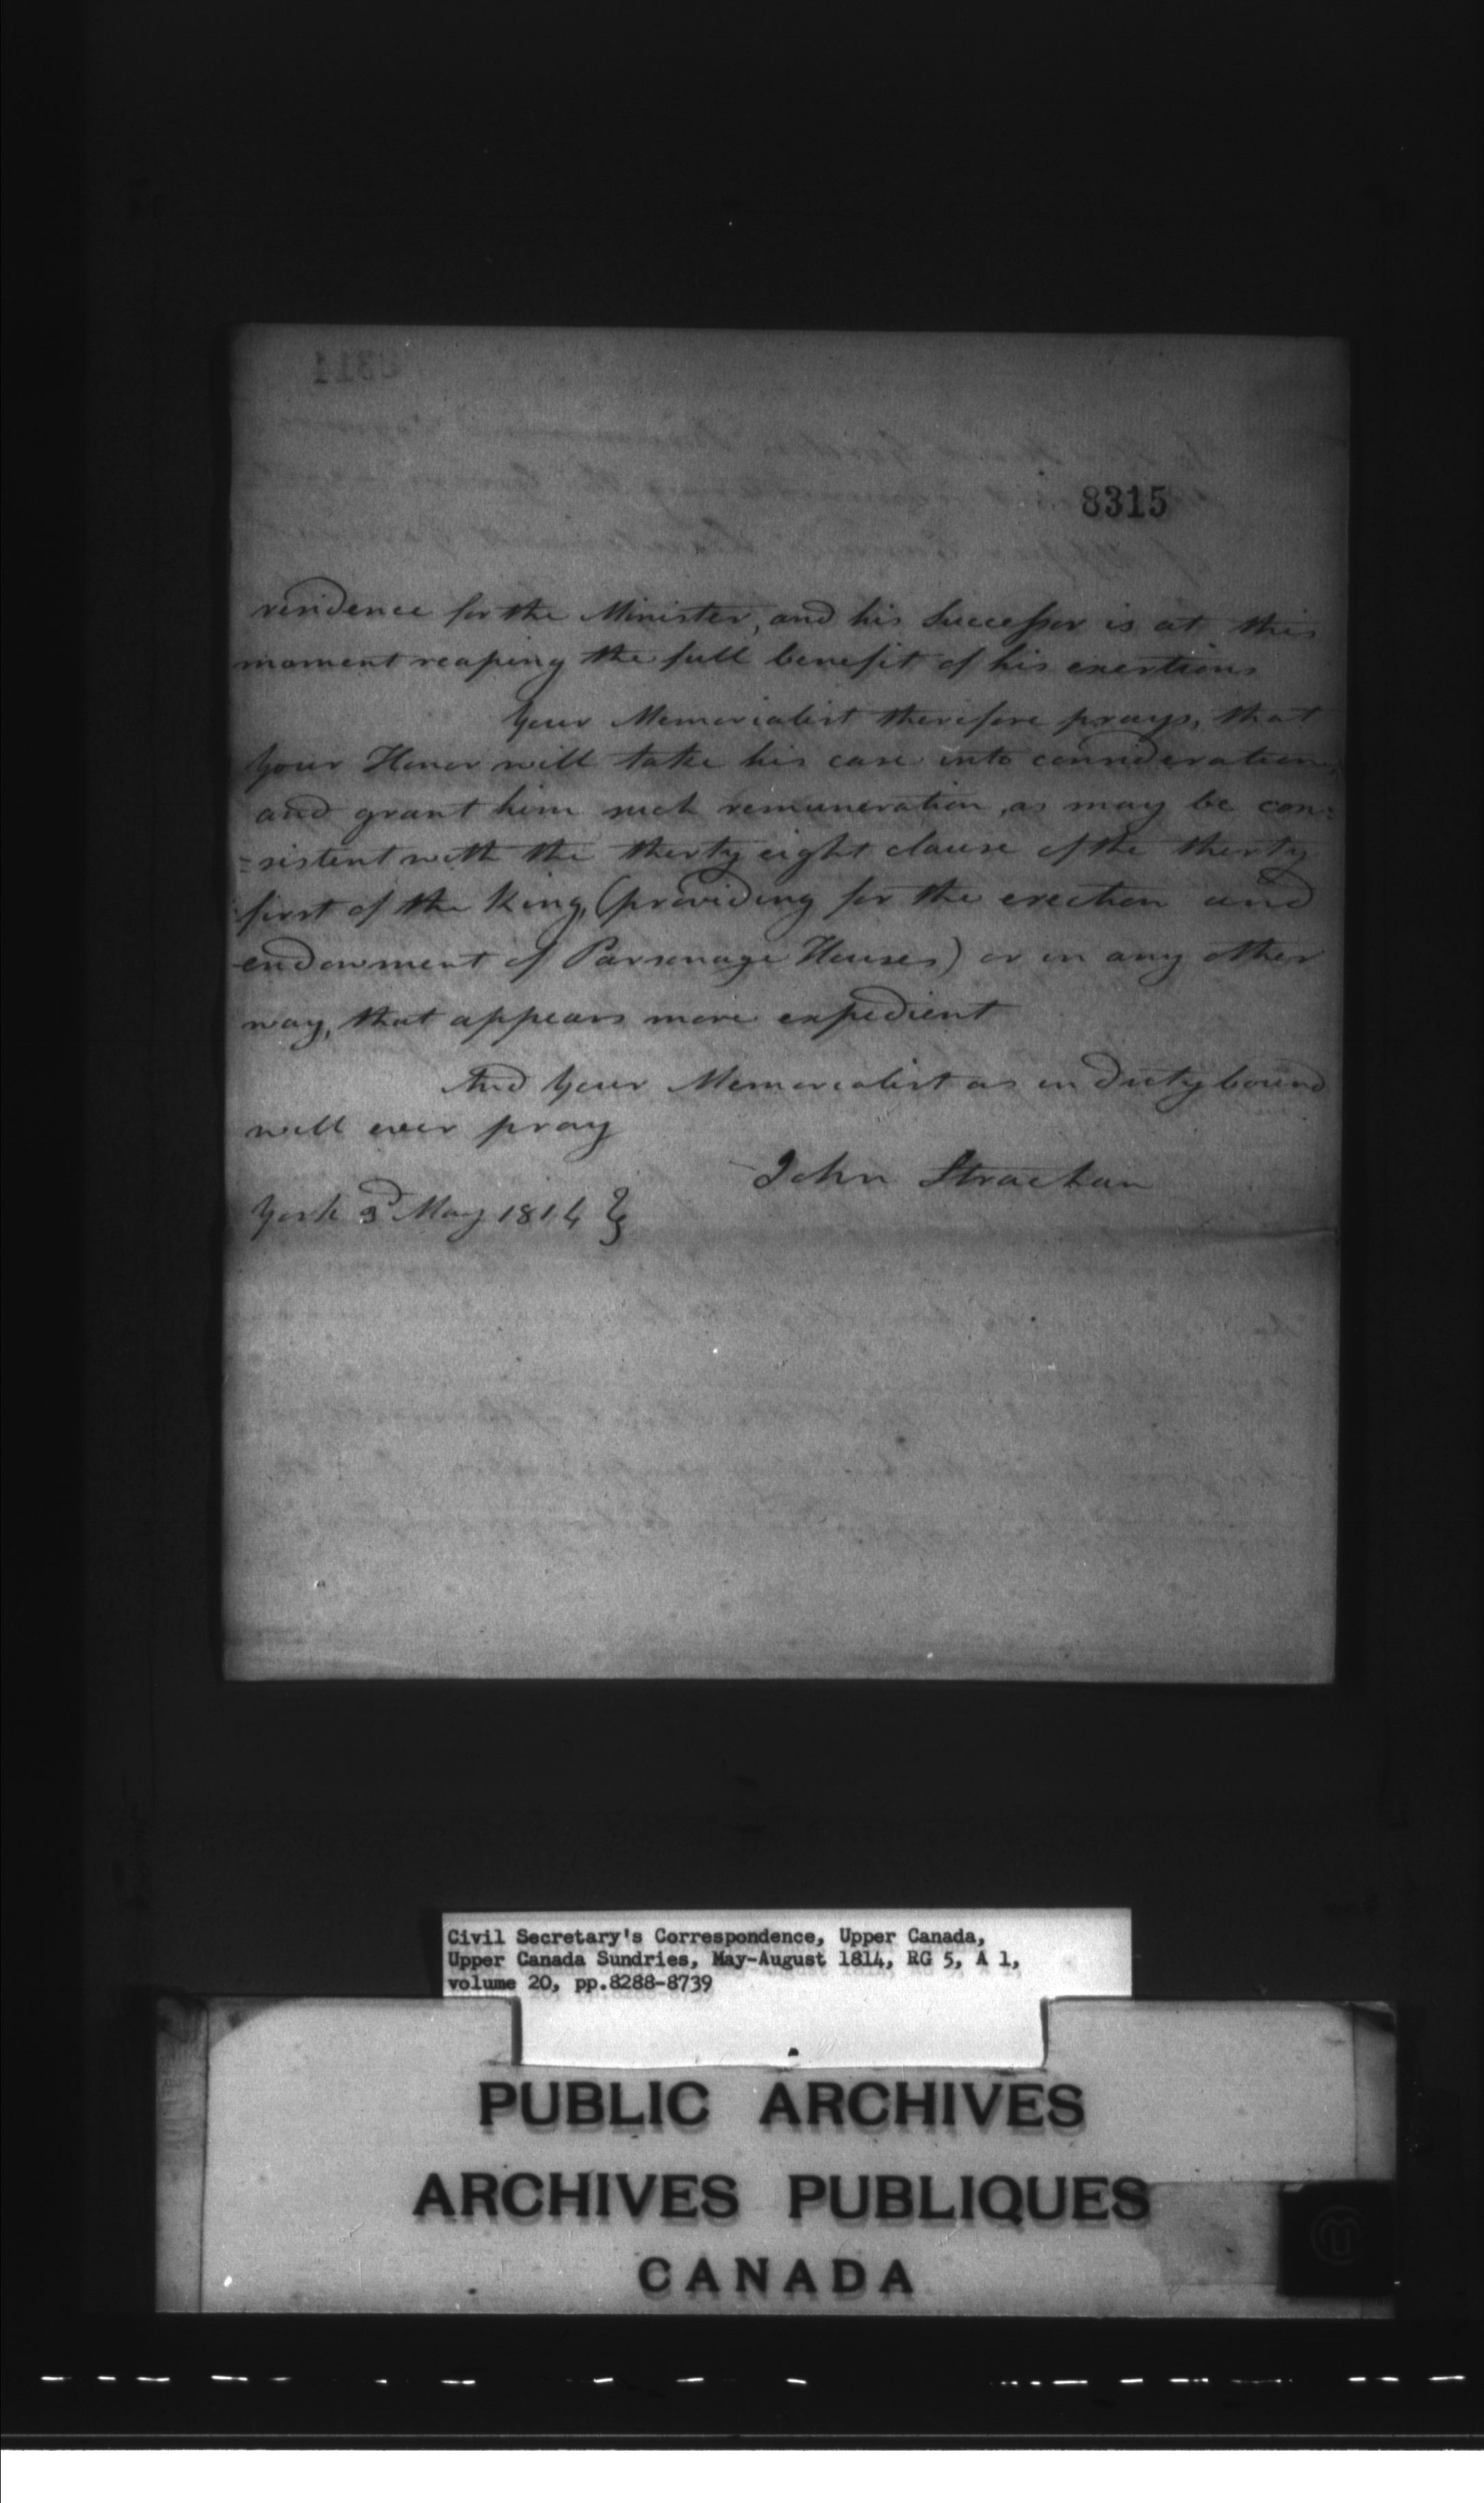 8315
residence for the Minister, and his Successor is at this
moment reaping the full benefit of his exertions
Your Memorialist therefore prays, that
Your Honor will take his case into consideration,
and grant him such remuneration, as may be con=
=sistent with the thirty eight clause of the thirty
first of the King, (providing for the erection and
endowment of Parsonage Houses) or in any other
way, that appears more expedient
And Your Memorialist as in Duty bound
will ever pray
John Strachan
York 3d May 1814 }
Civil Secretary's Correspondence, Upper Canada,
Upper Canada Sundries, May-August 1814, RG 5, A 1,
volume 20, pp.8288-8739
PUBLIC ARCHIVES
ARCHIVES PUBLIQUES
CANADA